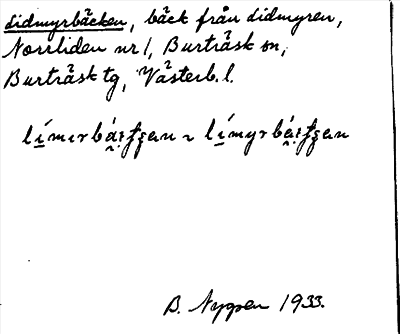 Lidmyrbäcken, bäck från Lidmyren,
Norrliden nr 1, Burträsk sn,
Burträsk tg, Västerb. l.
B. Nygren 1933.